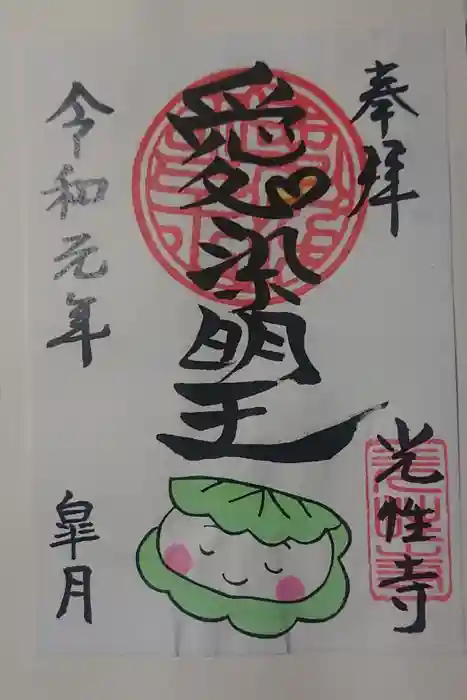 奉拝
光性寺
愛染明王
令和元年
皐月